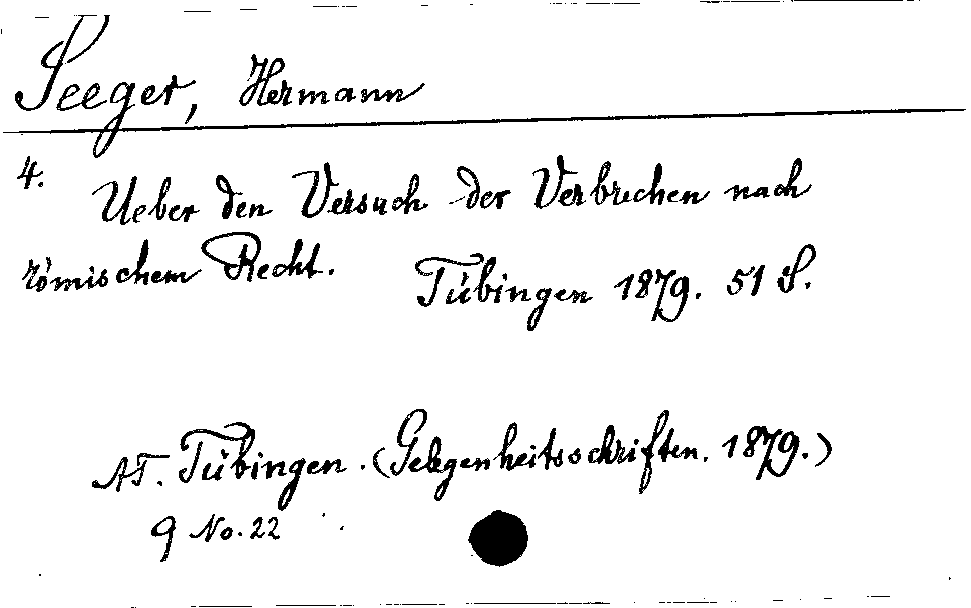 Seeger, Hermann
4. Ueber den Versuch der Verbrechen nach
römischem Recht. Tübingen 1879. 51 S.
AT. Tübingen. (Gelegenheitsschriften. 1879.)
9 No. 22